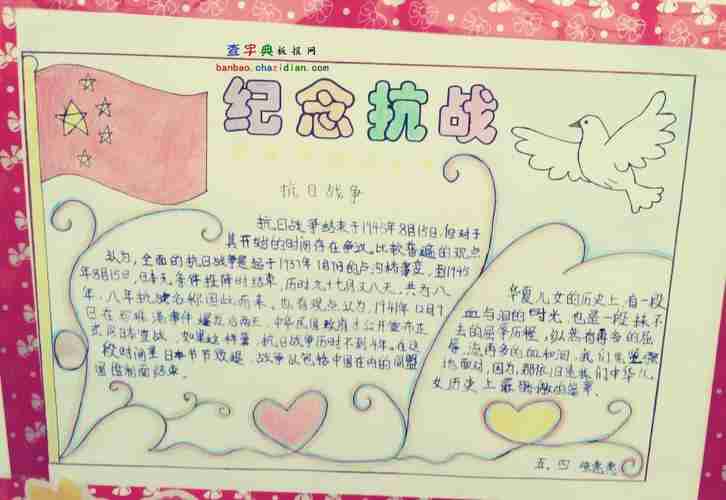 查字典板报网
banbao.chazidian.com
纪念抗战
抗日战争
抗日战争结束于1945年8月15日,但对于
其开始的时间存在争议。比较普遍的观点
认为,全面的抗日战争是起于1937年7月7日的卢沟桥事变,到1945
年8月15日,日本无条件投降时结束,历时九十九月又八天,共为八
年,八年抗战名称因此而来。也有观点认为,1941年12月9
日在珍珠港事件爆发后两天,中华民国政府才公开宣布正
式向日本宣战,如果这样算,抗日战争历时不到4年。在这
段时间里日本节节败退,战争以包括中国在内的同盟
国
结束。
华夏儿女的历史上,有一段
血与泪的时光,也是一段抹不
去的屈辱历程,纵然有再多的屈
辱,流再多的血和泪,我们
地面对,因为,那依旧是我们中华儿
女历史上最
的篇章。
五.四